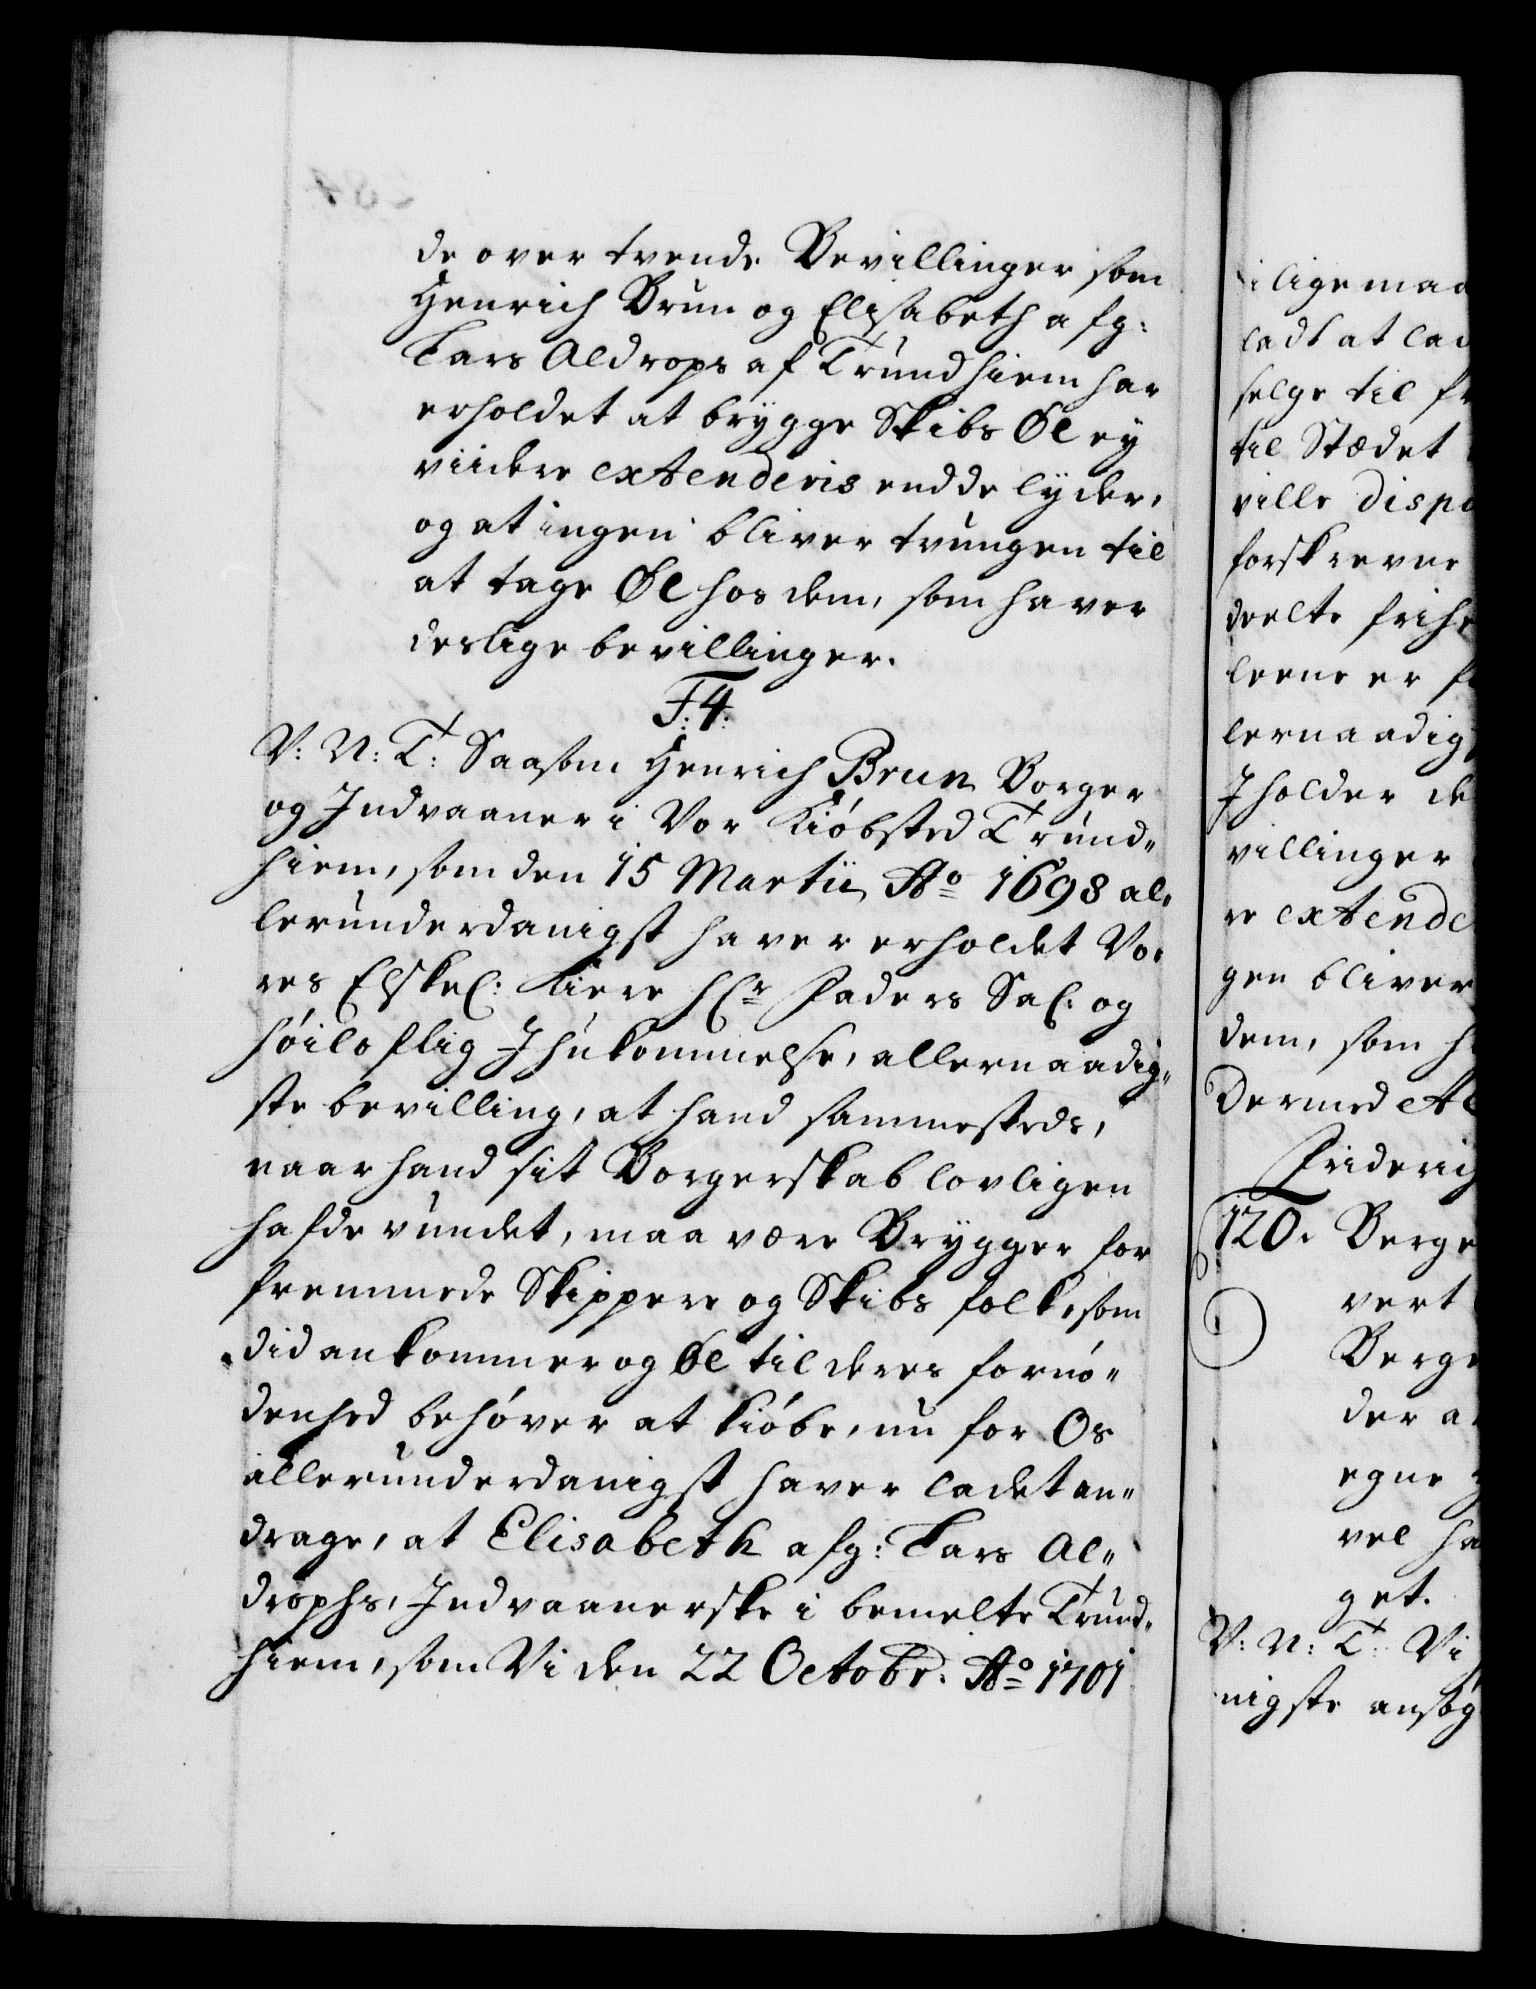 de over tvende Bevillinger som
Henrich Brun og Elisabeth afg:
Lars Aldrops af Trundhiem har
erholdet at brygge Skibs Øl ey
viidere extenderis end de lyder,
og at ingen bliver tvungen til
at tage Øl hos dem, som haver
deslige bevillinger.
F: 4.
V: N: T: Saasom Henrich Brun Borger
og Indvaaner i Vor Kiøbsted Trund„
hiem, som den 15 Martii Ao 1698 al„
lerunderdanigst haver erholdet Vo„
res Elskel: Kiere Hr Faders Sal: og
høiloflig Ihukommelse, allernaadig„
ste bevilling, at hand sammesteds,
naar hand sit Borgerskab lovligen
hafde vundet, maa være Brygger for
fremmede Skippere og Skibs folk, som
did ankommer og Øl til deres fornø„
denhed behøver at kiøbe, nu for Os
allerunderdanigst haver ladet an„
drage, at Elisabeth afg: Lars Al„
drophs, Indvaanerske i bemelte Trund„
hiem, som Vi den 22 Octobr: Ao 1701
i lige maa
ladt at lad
selge til fr
til Stædet
ville dispo
forskrevne
deelte frihe
leene er
lernaadig
I holder de
villinger
re extende
gen bliver
dem, som h
Dermed
Friderich
120. Berge
vert
Berge
der a
egne
vel ha
get.
V: N: T: Vi
nigste ansøg